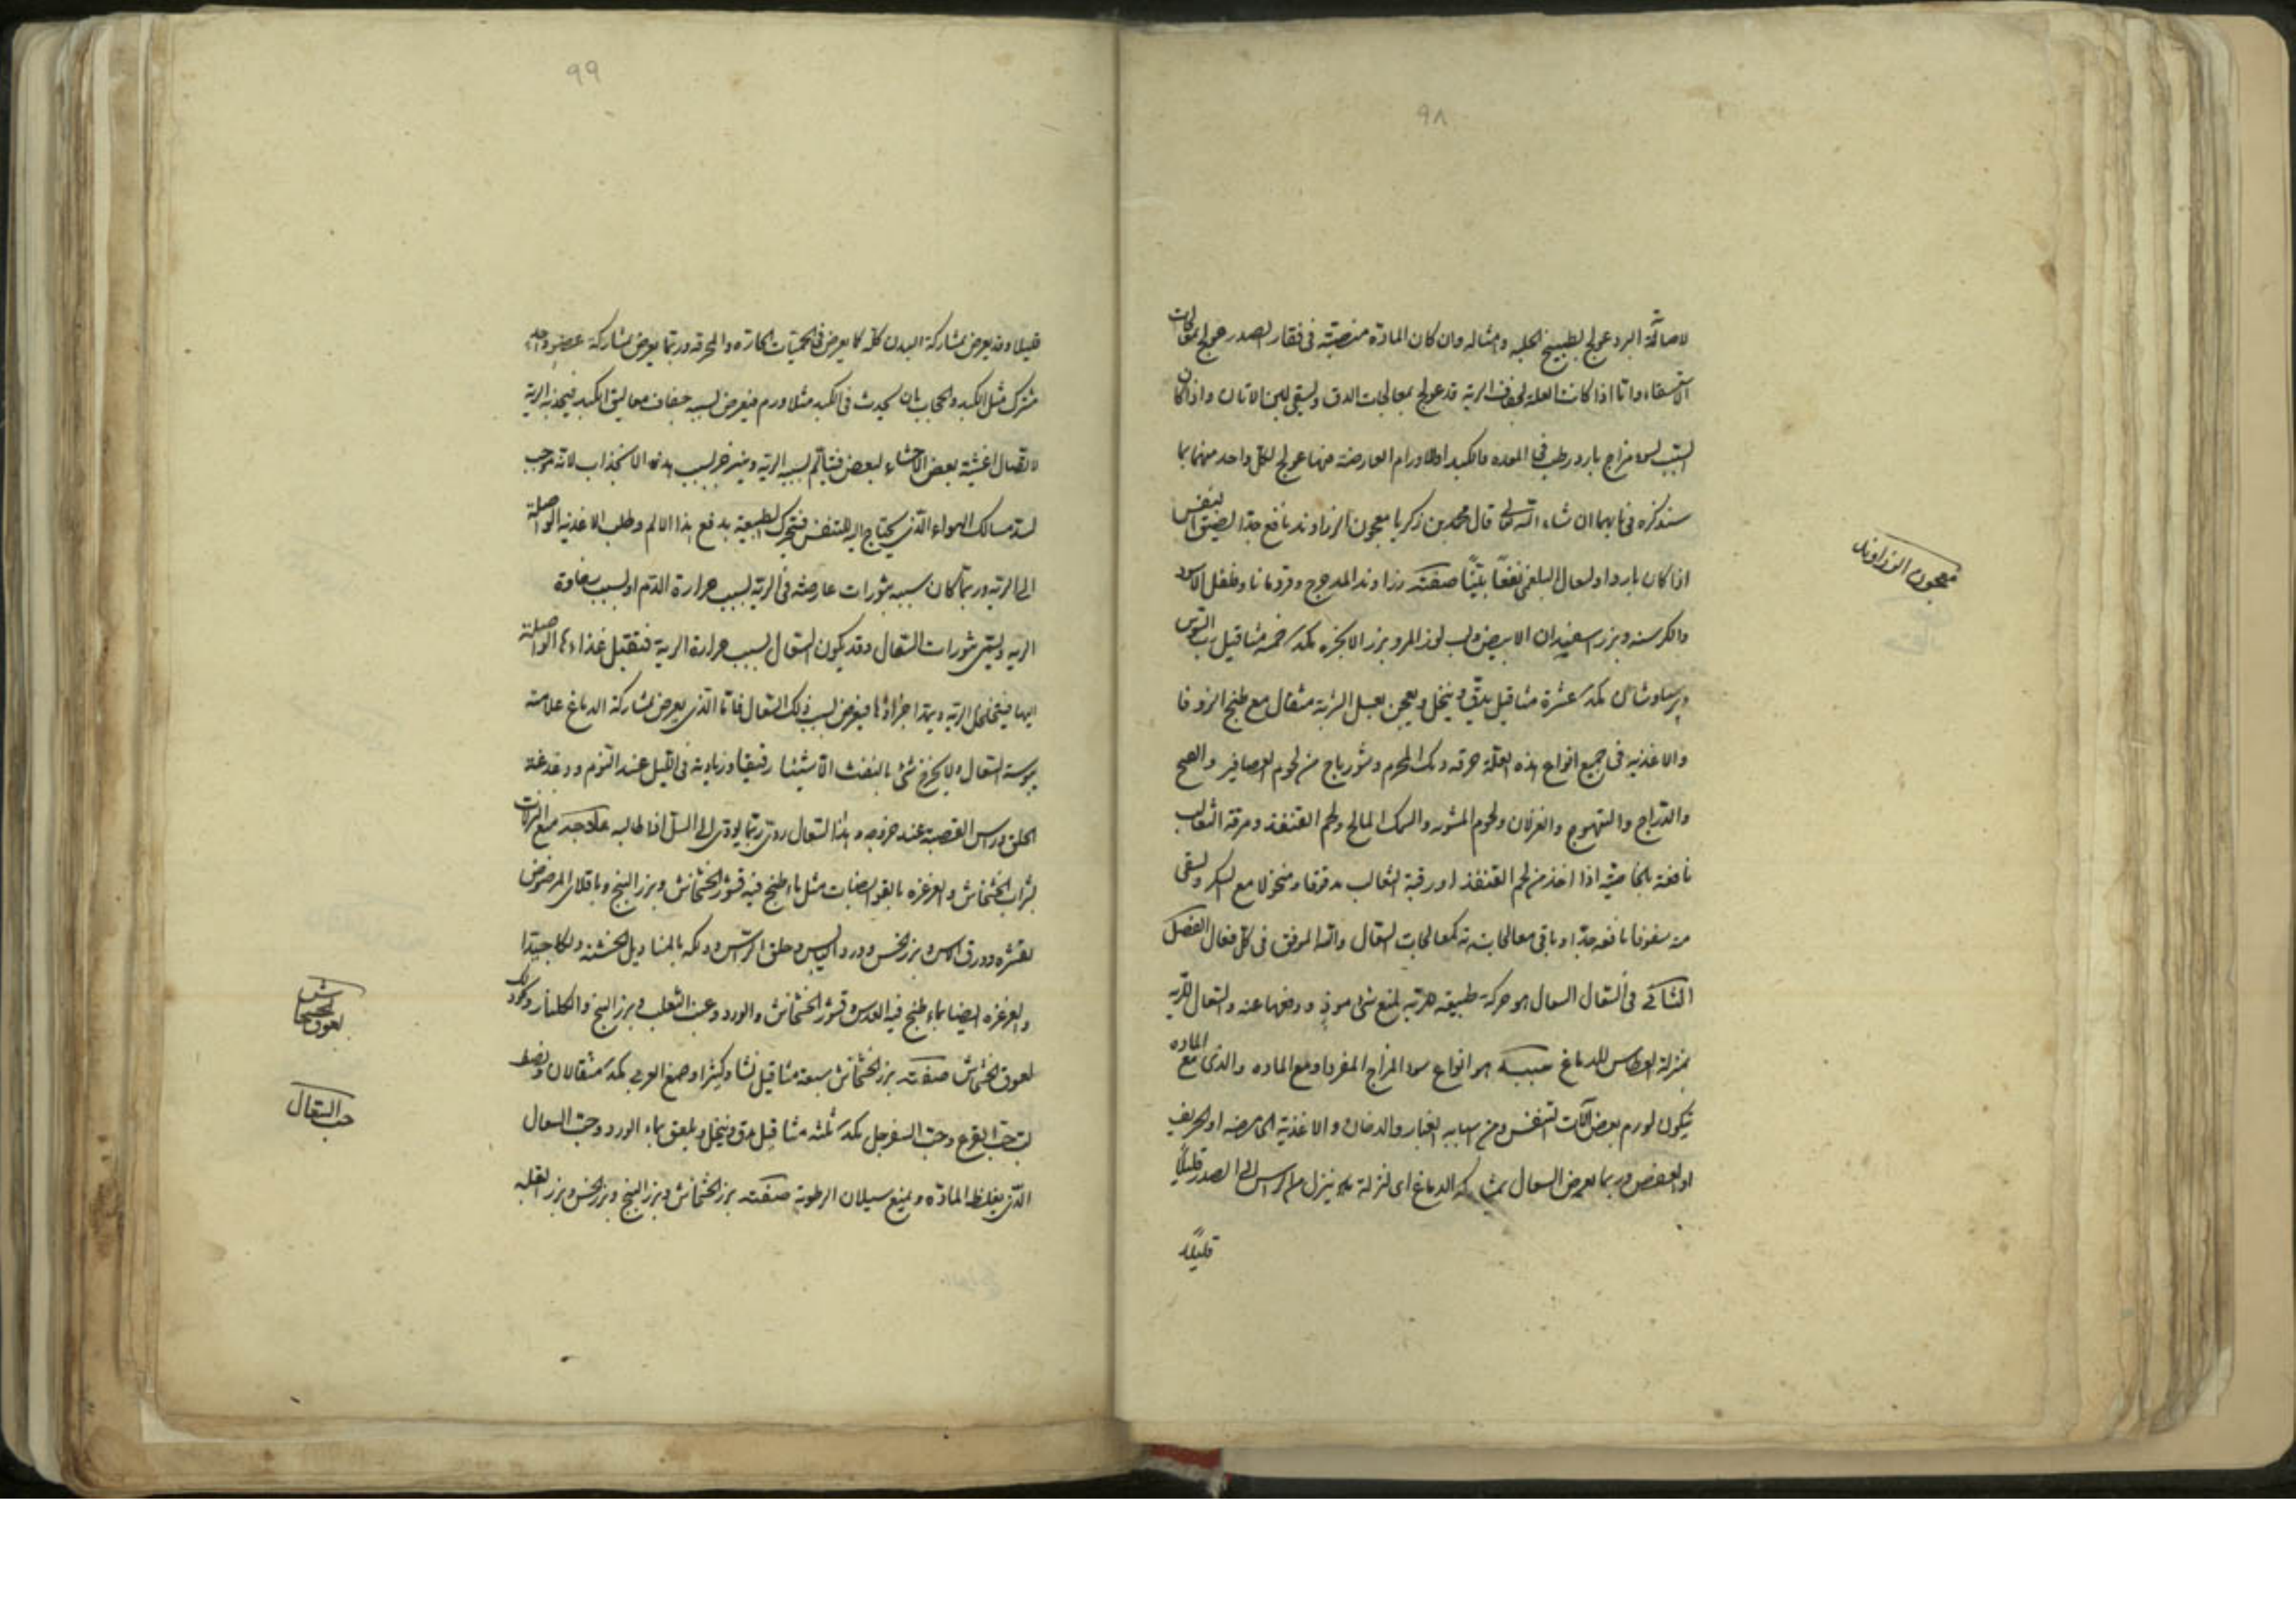 ٩٨
لاصابة البرد عولج بطبيخ الحلبه وامثاله وان كان المادة منصبة فى فقار الصدر عولج بمعالجات
الاستسقاء واما اذا كانت العلة لجفاف الرية قد عولج بمعالجات الدق ويسقى لبن الاتان واذا كان
السبب سوء مزاج بارد رطب فى المعده والكبد او الاورام العارضة منها عولج لكل واحد منهما بما
سنذكره فى بابهما ان شاء الله تعالى قال محمد بن زكريا معجون الزراوند نافع جدا لضيق النفس
اذا كان باردا ولسعال البلغمى نفعا بينا صفته زراوند المدحرج وقردمانا وفلفل الاسود
والكرسنه وبزر اسفيدان الابيض ولب لوز المر وبزر الانجره مكد خمسه مثاقيل رب السوس
وبرسياوشان مكد عشرة مثاقيل يدق وينخل ويعجن بعسل الشربة مثقال مع طبخ الزوفا
والاغذيه فى جميع انواع هذه العلة مرقه ديك الهرم وشورباج من لحوم العصافير والقبج
والدراج والتيهوج والغزلان ولحوم المشويه والسمك المالح ولحم القنفذ ومرقة الثعالب
نافعة بالخاصية اذا اخذ من لحم القنفذ او رقبة الثعالب مدقوقا ومنخولا مع السكر ويسقى
منه سفوفا نافعه جدا وباقى معالجاته كمعالجات السعال والله الموفق فى كل فعال الفصل
الثانى فى السعال السعال هو حركة طبيعة مرتبه لمنع شئ موذى ودفعها عنه والسعال للرية
بمنزلة العطاس للدماغ سببه هو انواع سوء المزاج المفرد او مع الماده والذى مع الماده
يكون لورم بعض آلات التنفس ومن اسبابه الغبار والدخان والاغذية الحامضه او الحريف
او العفص وربما يعرض السعال بمشاركة الدماغ اى لنزلة ينزل من الراس الى الصدر قليلا
قليلا
معجون الزراوند
٩٩
قليلا وقد يعرض بمشاركة البدن كله كما يعرض فى الحميات الحارة والمحرقه وربما يعرض بمشاركة عضو واحد
مشترك مثل الكبد والحجاب بان يحدث فى الكبد مثلا ورم فيعرض بسببه جفاف معاليق الكبد فينجذب الرية
لاتصال اغشية بعض الاحشاء ببعض فيتألم بسببه الرية وينزجر بسبب هذه الانجذاب لانه موجب
لسد مسالك الهواء الذى يحتاج اليه للتنفس فيتحرك الطبيعة بدفع هذا الالم وطلب الاغذيه الواصلة
الى الرية وربما كان سببه بثورات عارضه فى الرية بسبب حرارة الدم او بسبب سخاوة
الريه ويسمى بثورات السعال وقد يكون السعال بسبب حرارة الرية فتقبل غذاءها الواصلة
اليها فيتخلخل الرية ويمتد اجزاؤها فيعرض بسبب ذلك السعال فاما الذى يعرض بمشاركة الدماغ علامته
يبوسة السعال ولا يخرج شئ بالنفث الا شيئا رقيقا وزيادته فى الليل عند النوم ودغدغة
الحلق وراس القصبة عند خروجه وهذا السعال ردئ ربما يودى الى السل اذا طالبه علاجه منع النزلات
بشراب الخشخاش والغرغره بالقوابضات مثل ماء طبخ فيه قشور الخشخاش وبزر البنج وباقلاى المرضوض
بقشره وورق الاس وبزر الخس وورد اليابس وحلق الراس ودلكه بالمناديل الخشنة دلكا جيدا
والغرغره ايضا بماء طبخ فيه العدس وقشور الخشخاش والورد وعنب الثعلب وبزر البنج والكلنار وكذلك
لعوق الخشخاش صفته بزر الخشخاش سبعة مثاقيل نشا وكثيرا وصمغ العربى مكد مثقالان ونصف
لب حب القرع وحب السفرجل مكد ثلثه مثاقيل يدق وينخل ويلعق بماء الورد وحب السعال
الذى يغلظ المادة ويمنع سيلان الرطوبة صفته بزر الخشخاش وبزر البنج وبزر الخس وبزر البقلة
لعوق الخشخاش
حب السعال